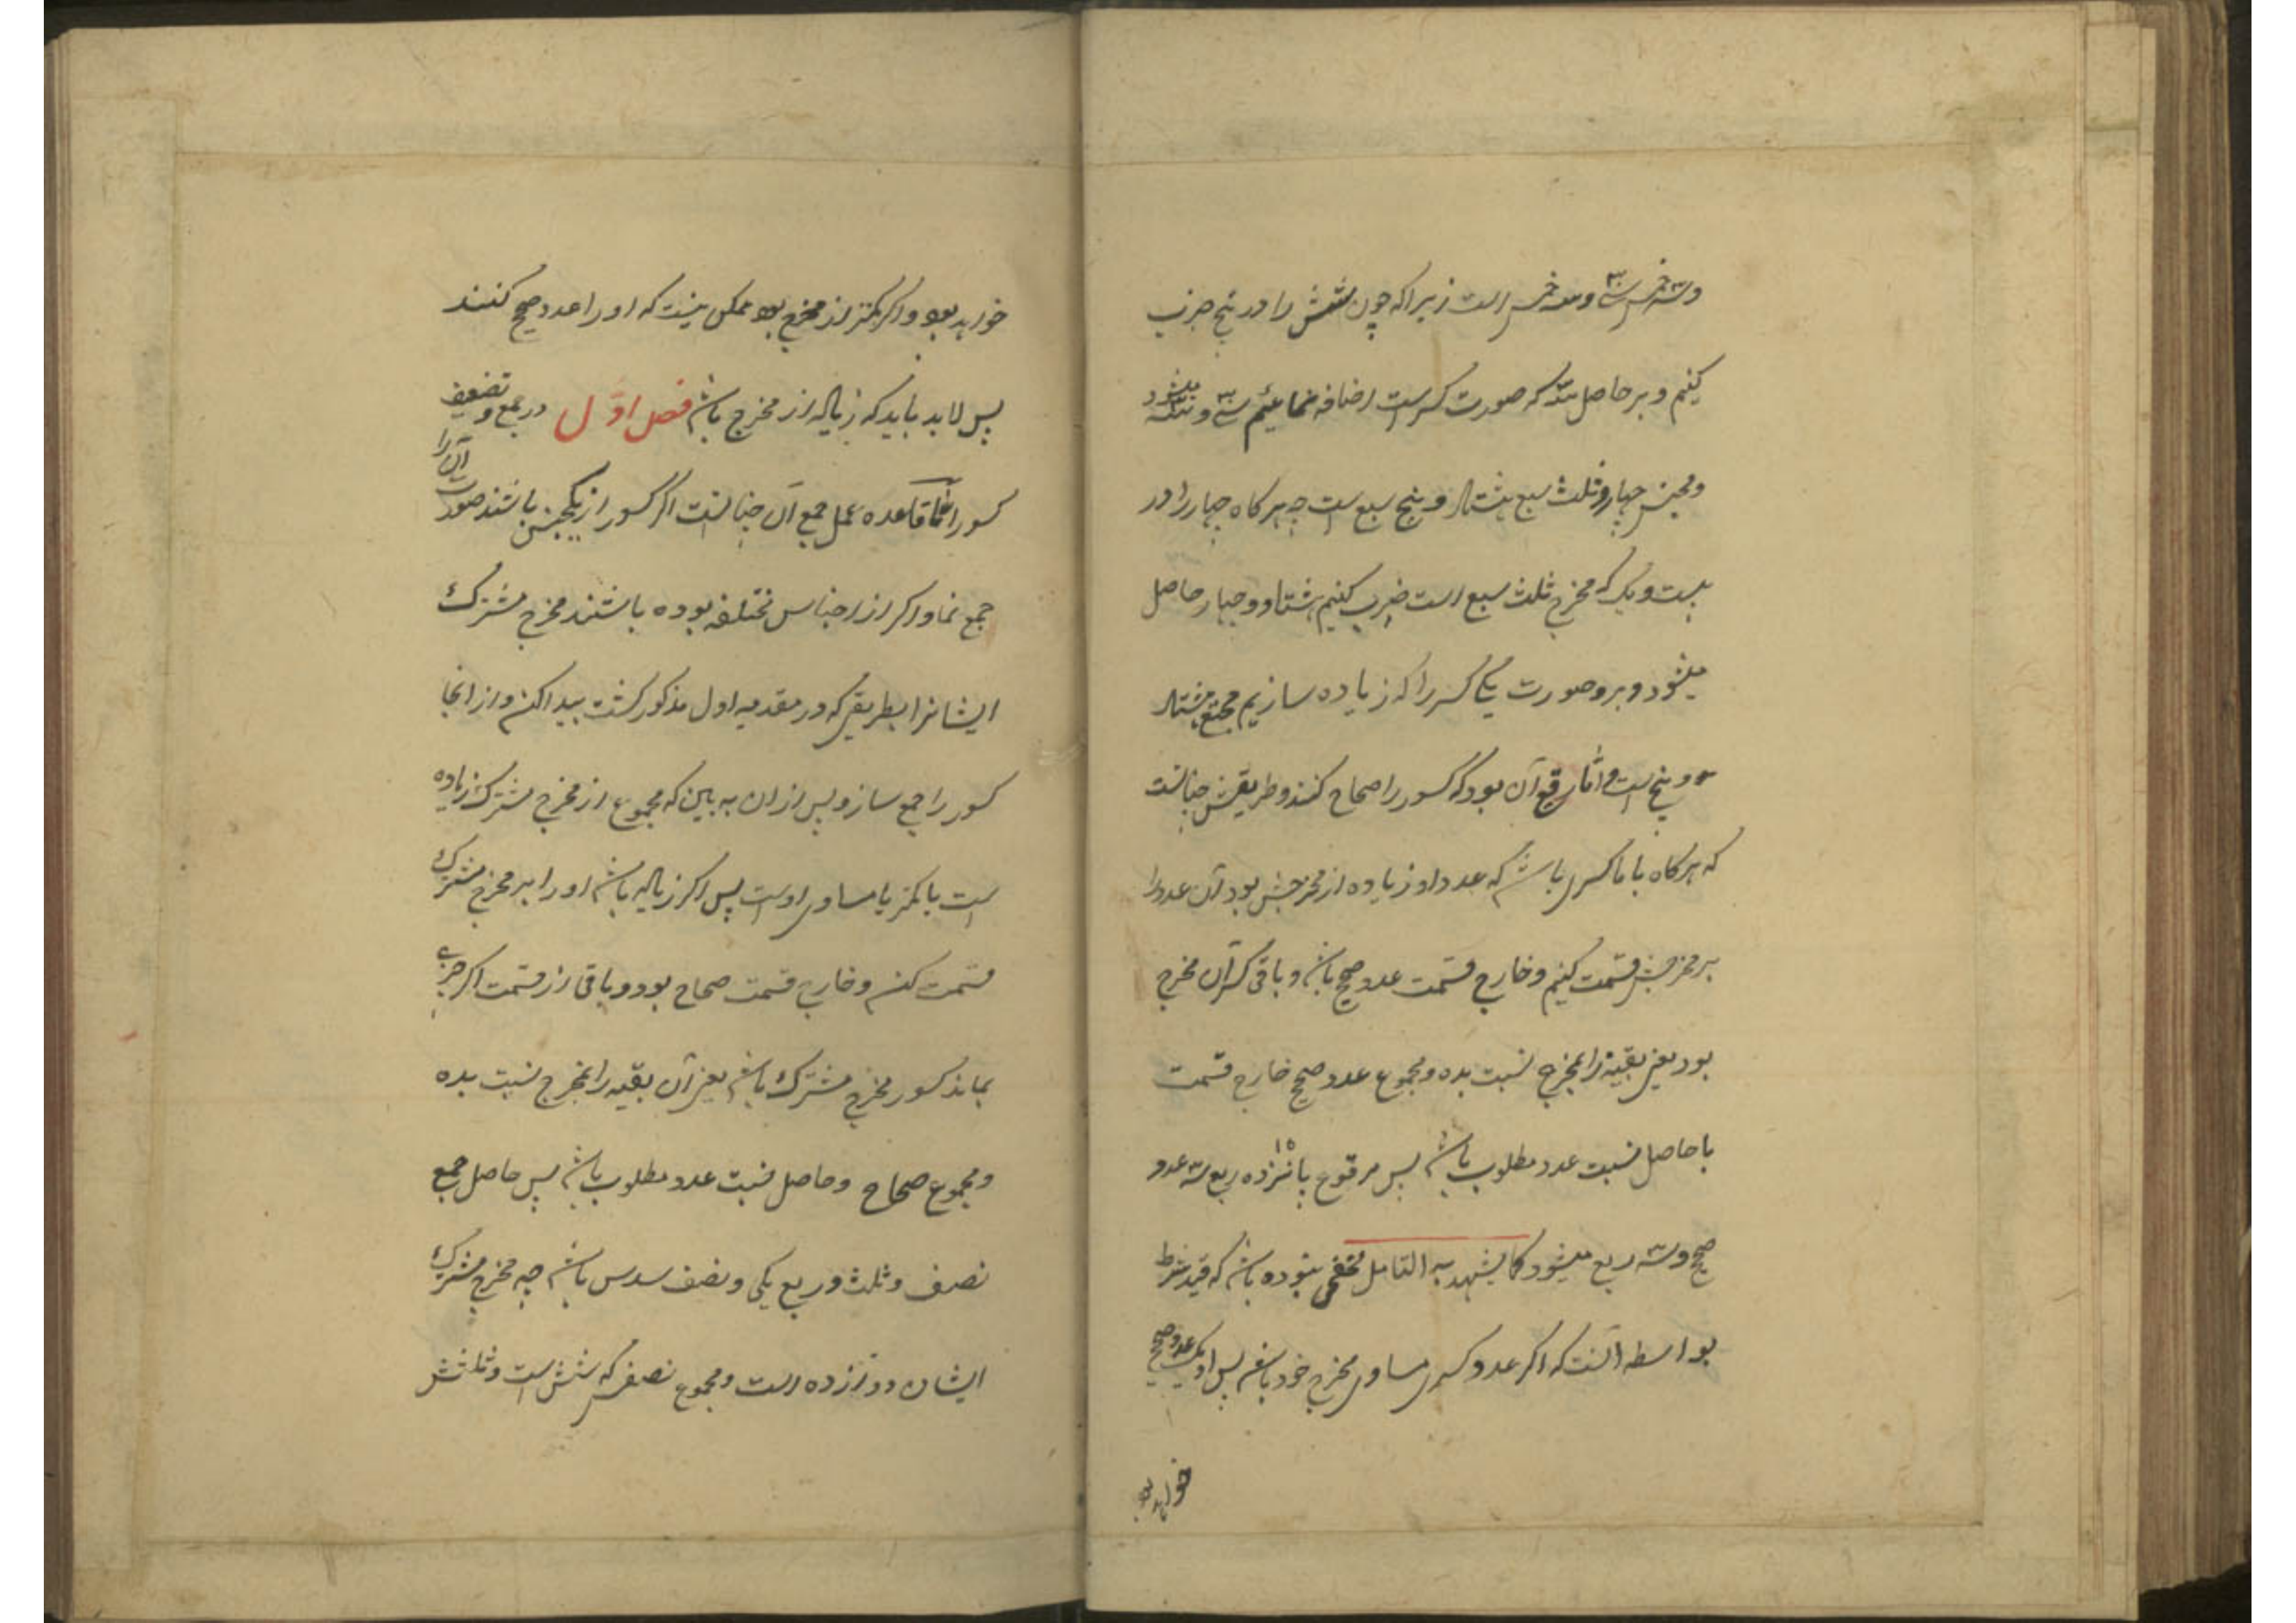 وسه خمس سی وسه خمس است زیرا که چون شش را در پنج ضرب
کنیم و بر حاصل سه که صورت کسرست اضافه نمائیم سی و سه میشود
ومجنس چهار وثلث سبع هشتاد و پنج سبع ست چه هر کاه چهار را در
بیست ویک که مخرج ثلث سبع است ضرب کنیم هشتاد و چهار حاصل
میشود و برو صورت کسر را که یکی زیاده سازیم مجتمع هشتاد
و پنج است و اما رفع آن بود که کسور را صحاح کنند و طریقش چنانست
که هرکاه با ما کسری باشد که عدد او زیاده از مخرجش بود آن عدد را
بر مخرجش قسمت کنیم وخارج قسمت عدد صحیح باشد و باقی کسر آن مخرج
بود یعنی بقیه را بمخرج نسبت بده ومجموع عدد صحیح خارج قسمت
با حاصل نسبت عدد مطلوب باشد پس مرفوع پانزده ۱۵ ربع سه عدد
صحیح وسه ربع میشود کما یشهد به التامل مخفی نبوده باشد که قید شرط
بواسطه آنست که اکر عدد کسر مساوی مخرج خود باشد پس او یک عدد صحیح
خواهد بود
خواهد بود و اکر کمتر از مخرج بود ممکن نیست که او را عدد صحیح کنند
پس لابد باید که زیاده از مخرج باشد فصل اوّل در جمع و تضعیف
کسور امّا قاعده عمل جمع آن چنانست اکر کسور از یکجنس باشند صورت آن را
جمع نما و اکر از اجناس مختلفه بوده باشند مخرج مشترک
ایشانرا بطریقی که در مقدمه اول مذکور کشت پیدا کن و از انجا
کسور را جمع ساز و پس از ان به بین که مجموع از مخرج مشترک زیاده
است یا کمتر یا مساوی اوست پس اکر زیاده باشد او را بر مخرج مشترک
قسمت کن وخارج قسمت صحاح بود و باقی از قسمت اکر چیزی
بماند کسور مخرج مشترک باشد یعنی آن بقیه را بمخرج نسبت بده
ومجموع صحاح وحاصل نسبت عدد مطلوب باشد پس حاصل جمع
نصف وثلث و ربع یکی ونصف سدس باشد چه مخرج مشترک
ایشان دوازده است ومجموع نصفش که شش است وثلثش